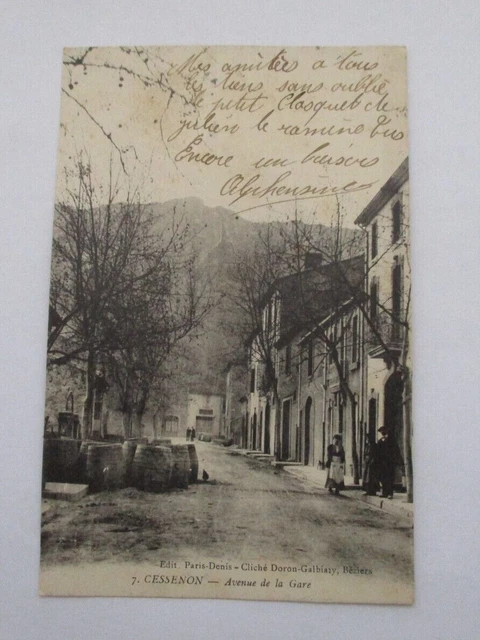 Mes amitiés a tous
les tiens sans oublié
le petit Clasquet de
julien le
Encore un baisers
Alphonsine
Edit. Paris-Denis - Cliché Doron-Galbiaty, Béziers
7. CESSENON — Avenue de la Gare